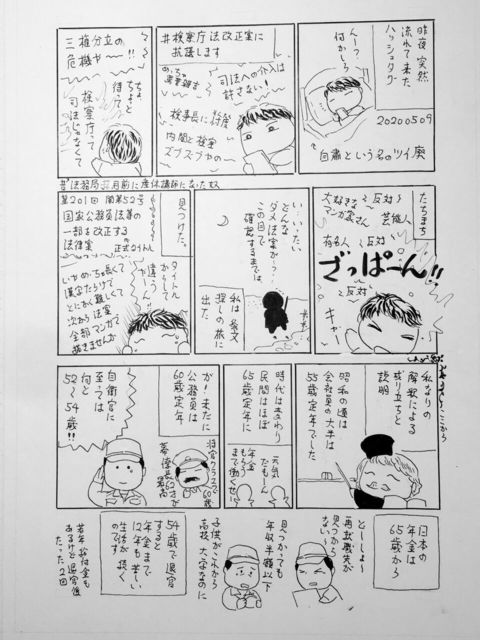 昨夜 突然
流れて来た
ハッシュタグ
んー？
何かしら
20200509
自粛という名のツイ廃
#検察庁法改正案に
抗議します
司法への介入は
許さない！
検事長に
内閣と検察
ズブズブヤのー
三権分立の
危機やー!!
ちょっと
待って
検察庁って
司法じゃなくて
たちまち
大好きな
マンガ家さん
〜反対
芸能人
有名人
〜反対
ざっぱーん!!
〜反対
キャー
い…いったい
どんな
ダメ法案か？
この目で
確認するまでは
私は 条文
探しの旅に
出た
見つけた。
第201回 閣第52号
国家公務員法等の
一部を改正する
法律案
正式タイトル
タイトル
からして
違うやん!!
いやめっちゃ長くて
漢字だらけで
とにかく難しくて
次から法案
全部マンガで
描きませんか
ここから
私なりの
解釈による
成り立ちと
説明
昭和の頃は
会社員の大半は
55歳定年でした
時代は変わり
民間はほぼ
65歳定年に
元気
だもーん
年金
もらう
まで働くぜ!!
が！未だに
公務員は
60歳定年
将官クラスで60歳
幕僚長62才が
最高
自衛官に
至っては
何と
52〜54歳!!
日本の
年金は
65歳から
とーしましょー
再就職先が
見つから
ないー
見つかっても
年収半額以下
子供がこれから
高校 大学なのに
54歳で退官
すると
年金まで
12年も苦しい
生活が続く
のです
若年給付金も
あるけど退官後
たった2回